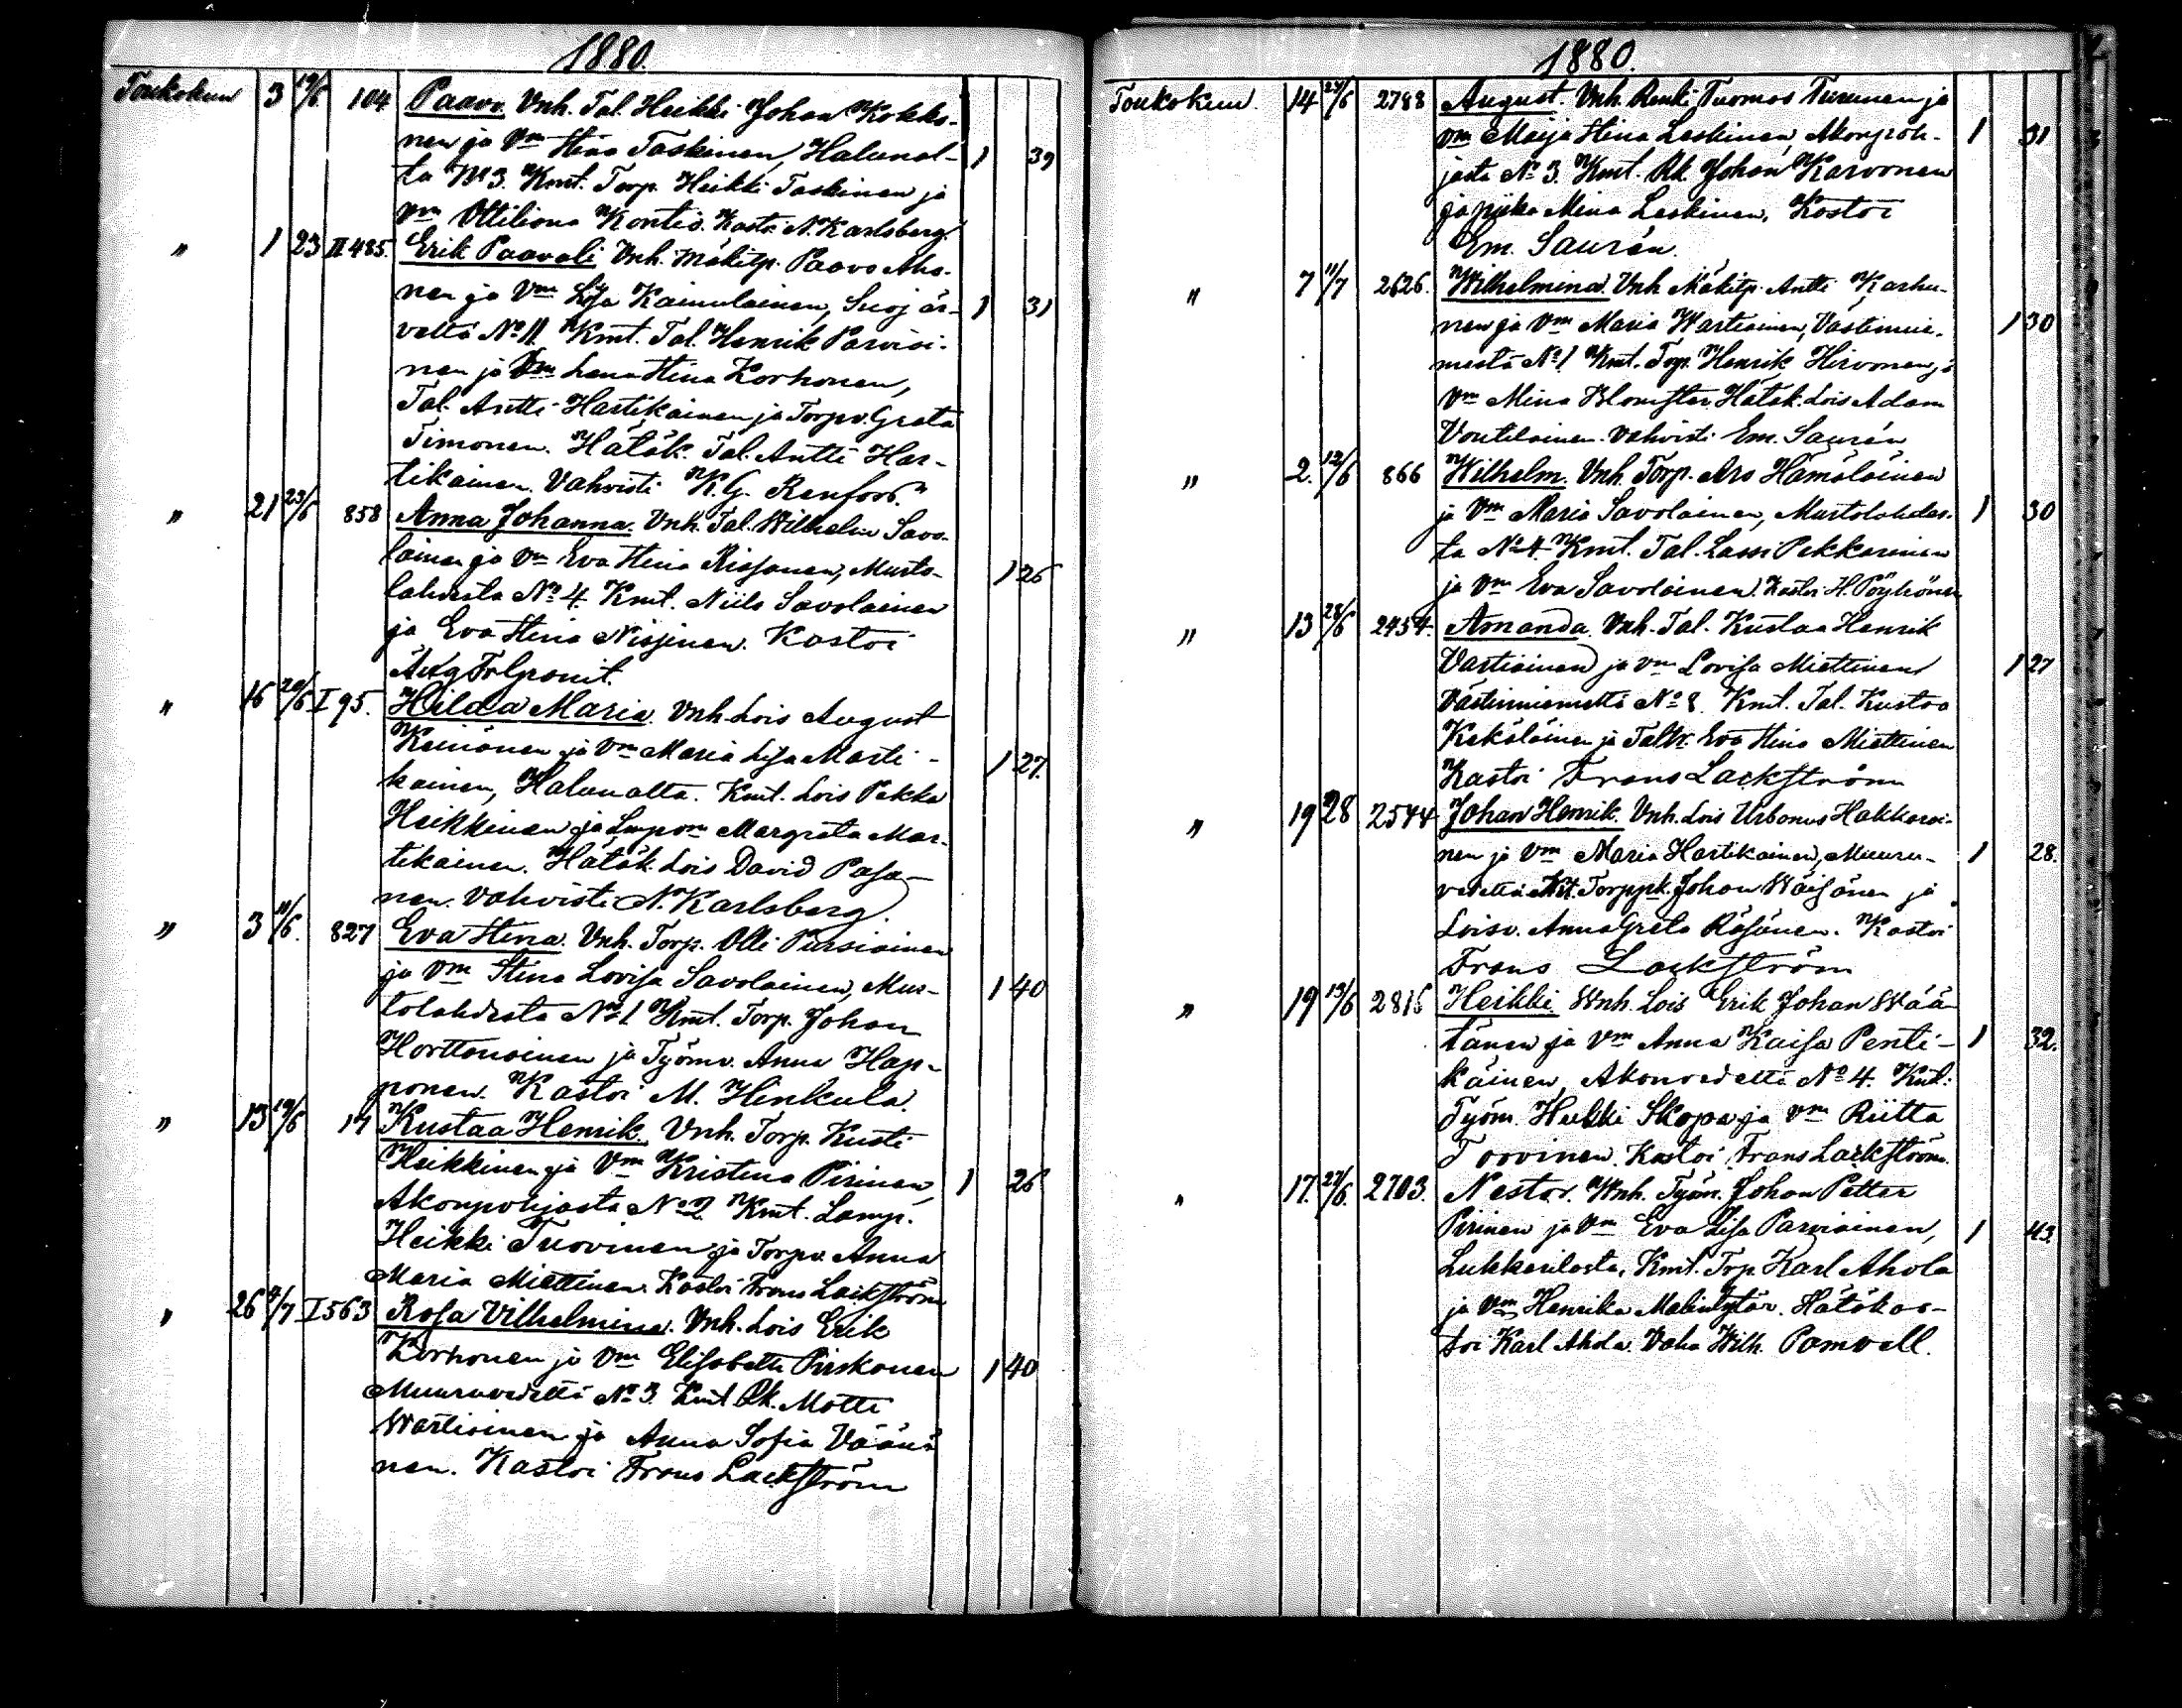 1880.
Toukokuu 3 19/6 104 Paavo. Vnh. Tal. Heikki Johan Kokko-
nen ja Vm Stina Taskinen, Halunal- 1 39
ta No 3. Kmt. Torp. Heikki Taskinen ja
Vm Ottiliana Kontio. Kasto N. Karlsberg.
" 1 23 II 485. Erik Paavali Vnh. Mäkitp. Paavo Aho-
nen ja Vm Lisa Kainulainen, Suojär- 1 31
veltä No 11 Kmt. Tal. Henrik Parviai-
nen ja Vm Lena Stina Korhonen,
Tal. Antti Hartikainen ja Torpv. Greta
Timonen. Hätäk. Tal. Antti Har-
tikainen. Vahvisti K. G. Renfors.
" 21 23/6 858 Anna Johanna. Vnh. Tal. Wilhelm Savo-
lainen ja Vm Eva Stina Rissanen, Musto- 1 26
lahdesta No 4. Kmt. Niilo Savolainen
ja Eva Stina Nissinen. Kastoi
" 16 20/6 I 95. Hilda Maria. Vnh. Lois August
Keinänen ja Vm Maria Lisa Marti- 1 27.
kainen, Halunalta. Kmt. Lois Pekka
Heikkinen ja Margreta Mar-
tikainen. Hätäk. Lois David Pasa-
nen. Vahvisti N. Karlsberg.
" 3 11/6. 827 Eva Stina. Vnh. Torp. Olli Pursiainen
ja Vm Stina Lovisa Savolainen, Mus- 1 40
tolahdesta No 1 Kmt. Torp. Johan
Horttanainen ja Työmv. Anna Hap-
ponen. Kastoi M. Hinkula.
" 13 19/6 14 Kustaa Henrik. Vnh. Torp. Kusti
Heikkinen ja Vm Kristina Pirinen, 1 26
Akonpohjasta No 2 Kmt. Lamp.
Heikki Tuovinen ja Torpv. Anna
Maria Miettinen. Kastoi Frans Lackström
" 26 4/7 I 563 Rosa Vilhelmina. Vnh. Lois Erik
Korhonen ja Vm Elisabetta Pirskanen 1 40
Muuruvedeltä No 3. Kmt. Rk. Matti
Wartiainen ja Anna Sofia Väänä
nen. Kastoi Frans Lackström
1880.
Toukokuu. 14 27/6 2788 August. Vnh. Renki Tuomas Turunen ja
Vm Maija Stina Leskinen, Akonpoh- 1 31
jasta No 3. Kmt. Rk. Johan Karvonen
ja piika Mina Leskinen, Kastoi
Em. Saurén.
" 7 11/7 2626. Wilhelmina. Vnh Mäkitp. Antti Karhu-
nen ja Vm Maria Wartiainen, Västinnie- 1 30
mestä No 1 Kmt. Torp. Henrik Hirvonen ja
Vm Mina Blomster. Hätäk. Lois Adam
Voutilainen. Vahvisti Em. Saurén
" 2. 12/6 866 Wilhelm. Vnh. Torp. Aro Hämäläinen
ja Vm Maria Savolainen, Mustolahdes- 1 30
ta No 4. Kmt. Tal. Lassi Pekkarinen
ja Vm Eva Savolainen. Kastoi H. Pöyhönen
" 13 28/6 2454. Amanda. Vnh. Tal. Kustaa Henrik
Vartiainen ja Vm Lovisa Miettinen 1 27
Västinniemeltä No 8. Kmt. Tal. Kustaa
Kekäläinen ja Taltr. Eva Stina Miettinen
Kastoi Frans Lackström
" 19 28 2544 Johan Henrik. Vnh. Lois Urbanus Hakkarai-
nen ja Vm Maria Hartikainen, Muuru- 1 28.
vedeltä Kmt. Torppk. Johan Wäisänen ja
Loisv. Anna Greta Räsänen. Kastoi
Frans Lackström
" 19 19/6 2815 Heikki. Wnh. Lois Erik Johan Wää
tänen ja Vm Anna Kaisa Penti- 1 32.
käinen, Akonvedeltä No 4. Kmt.
Työm. Heikki Skopa ja Vm Riitta
Toivinen. Kastoi Frans Lackström.
" 17. 27/6. 2703. Nestor. Wnh. Työm. Johan Petter
Pirinen ja Vm Eva Lisa Parviainen, 1 43.
Lukkarilasta, Kmt. Trp. Karl Ahola
ja Vm Henrika Malintytär. Hätäkas-
toi Karl Ahola. Vahv. Wilh. Pomoell.